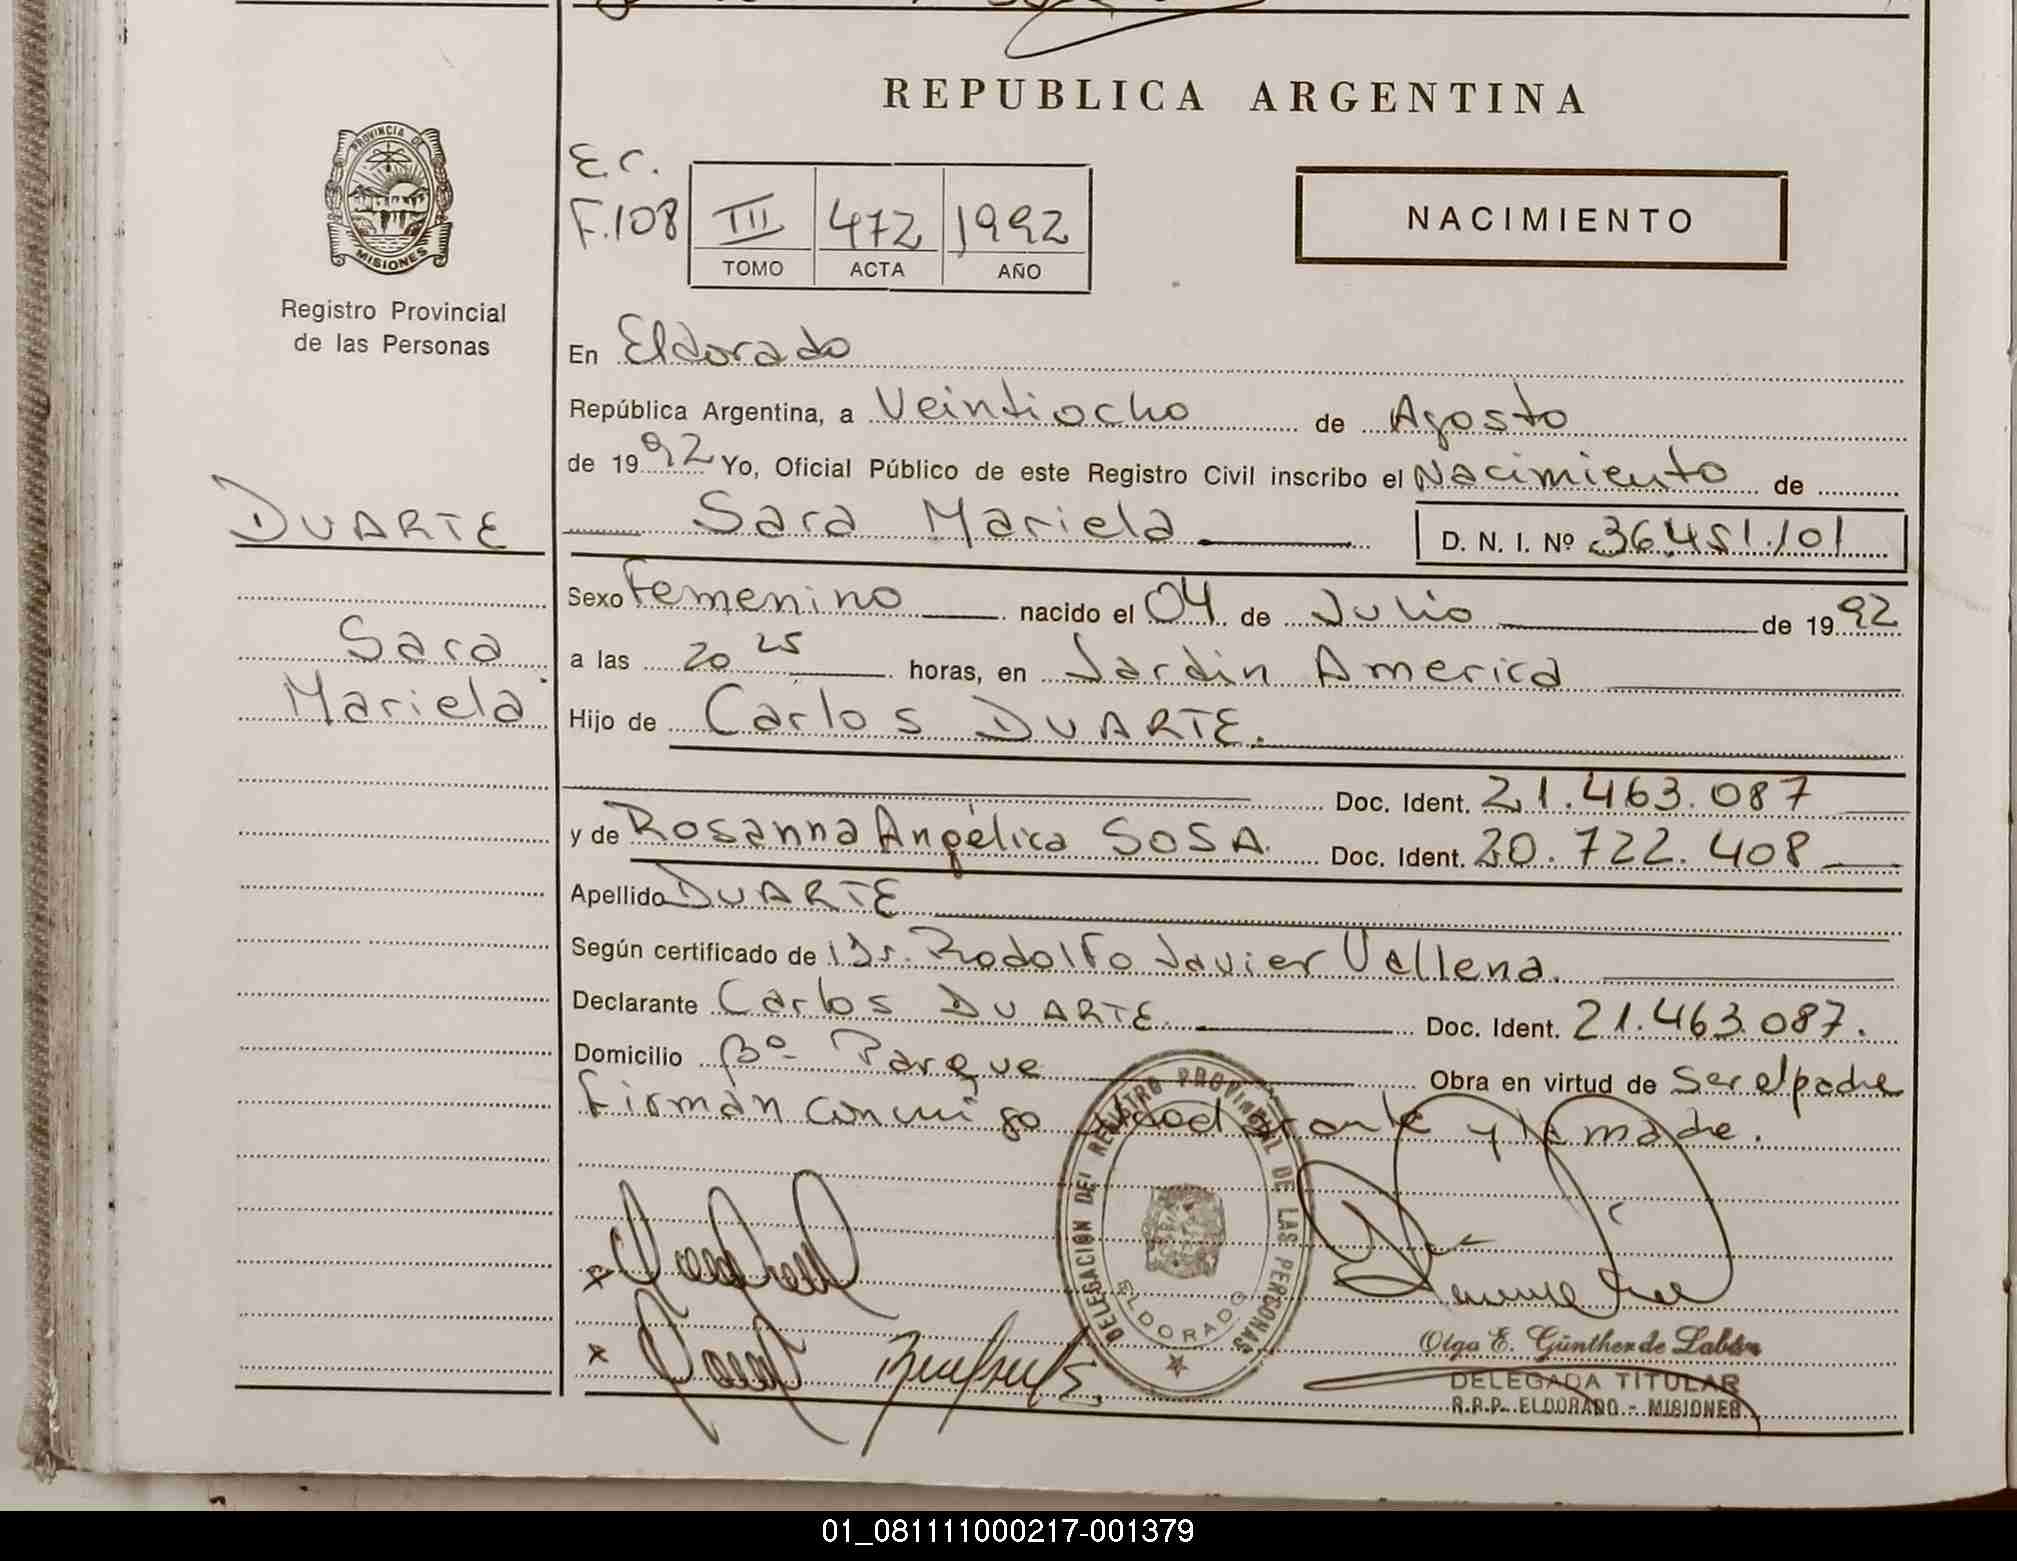 REPUBLICA ARGENTINA
PROVINCIA DE
MISIONES
Registro Provincial
de las Personas
E.C.
F.108
III 472 1992
TOMO ACTA AÑO
NACIMIENTO
En Eldorado
República Argentina, a Veintiocho de Agosto
de 1992 Yo, Oficial Público de este Registro Civil inscribo el Nacimiento de
DUARTE
Sara Mariela D. N. I. Nº 36.451.101
Sexo Femenino nacido el 04 de Julio de 1992
Sara
Mariela
a las 20 25 horas, en Jardin America
Hijo de Carlos DUARTE.
Doc. Ident. 21.463.087
y de Rosanna Angélica SOSA. Doc. Ident. 20.722.408
Apellido DUARTE
Según certificado de Dr. Rodolfo Javier Vellena.
Declarante Carlos DUARTE Doc. Ident. 21.463.087.
Domicilio Bº Parque Obra en virtud de ser el padre
Firman conmigo y la madre.
DELEGACION DEL REGISTRO PROVINCIAL DE LAS PERSONAS
ELDORADO
Olga E. Günther de
DELEGADA TITULAR
R.R.P. ELDORADO - MISIONES
01_081111000217-001379